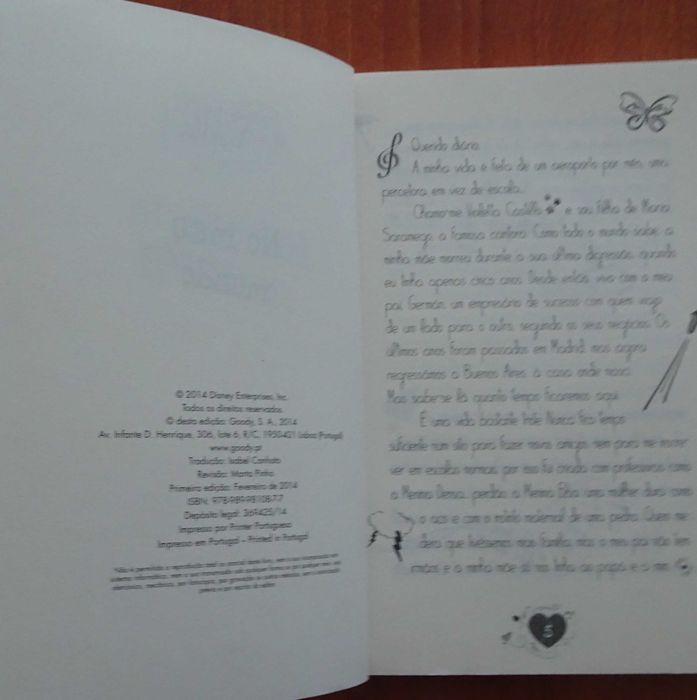 © 2014 Disney Enterprises, Inc.
Todos os direitos reservados
© desta edição: Goody, S. A., 2014
Av. Infante D. Henrique, 306, lote 6, R/C, 1950-421 Lisboa (Portugal)
www.goody.pt
Tradução: Isabel Canhoto
Revisão: Marta Pinho
Primeira edição: Fevereiro de 2014
ISBN: 978-989-98108-7-7
Depósito legal: 369425/14
Impresso por Printer Portuguesa
Impresso em Portugal – Printed in Portugal
Querido diário
A minha vida é feita de um aeroporto por mês, uma
percetora em vez de escola...
Chamo-me Violetta Castillo e sou filha de Maria
Saramego, a famosa cantora. Como todo o mundo sabe, a
minha mãe morreu durante a sua última digressão, quando
eu tinha apenas cinco anos. Desde então, vivo com o meu
pai, Germán, um empresário de sucesso com quem viajo
de um lado para o outro, segundo os seus negócios. Os
últimos anos foram passados em Madrid, mas agora
regressámos a Buenos Aires, à casa onde nasci.
Mas sabe-se lá quanto tempo ficaremos aqui.
É uma vida bastante triste. Nunca fico tempo
suficiente num sítio para fazer novos amigos nem para me
ver em escolas normais, por isso fui criada com professores como
a Menina Demos, perdão, a Menina Etha, uma mulher dura como
o aço e com o instinto maternal de uma pedra. Quem me
dera que tivéssemos mais família, mas o meu pai não tem
irmãos e a minha mãe só nos tinha ao papá e a mim.
5